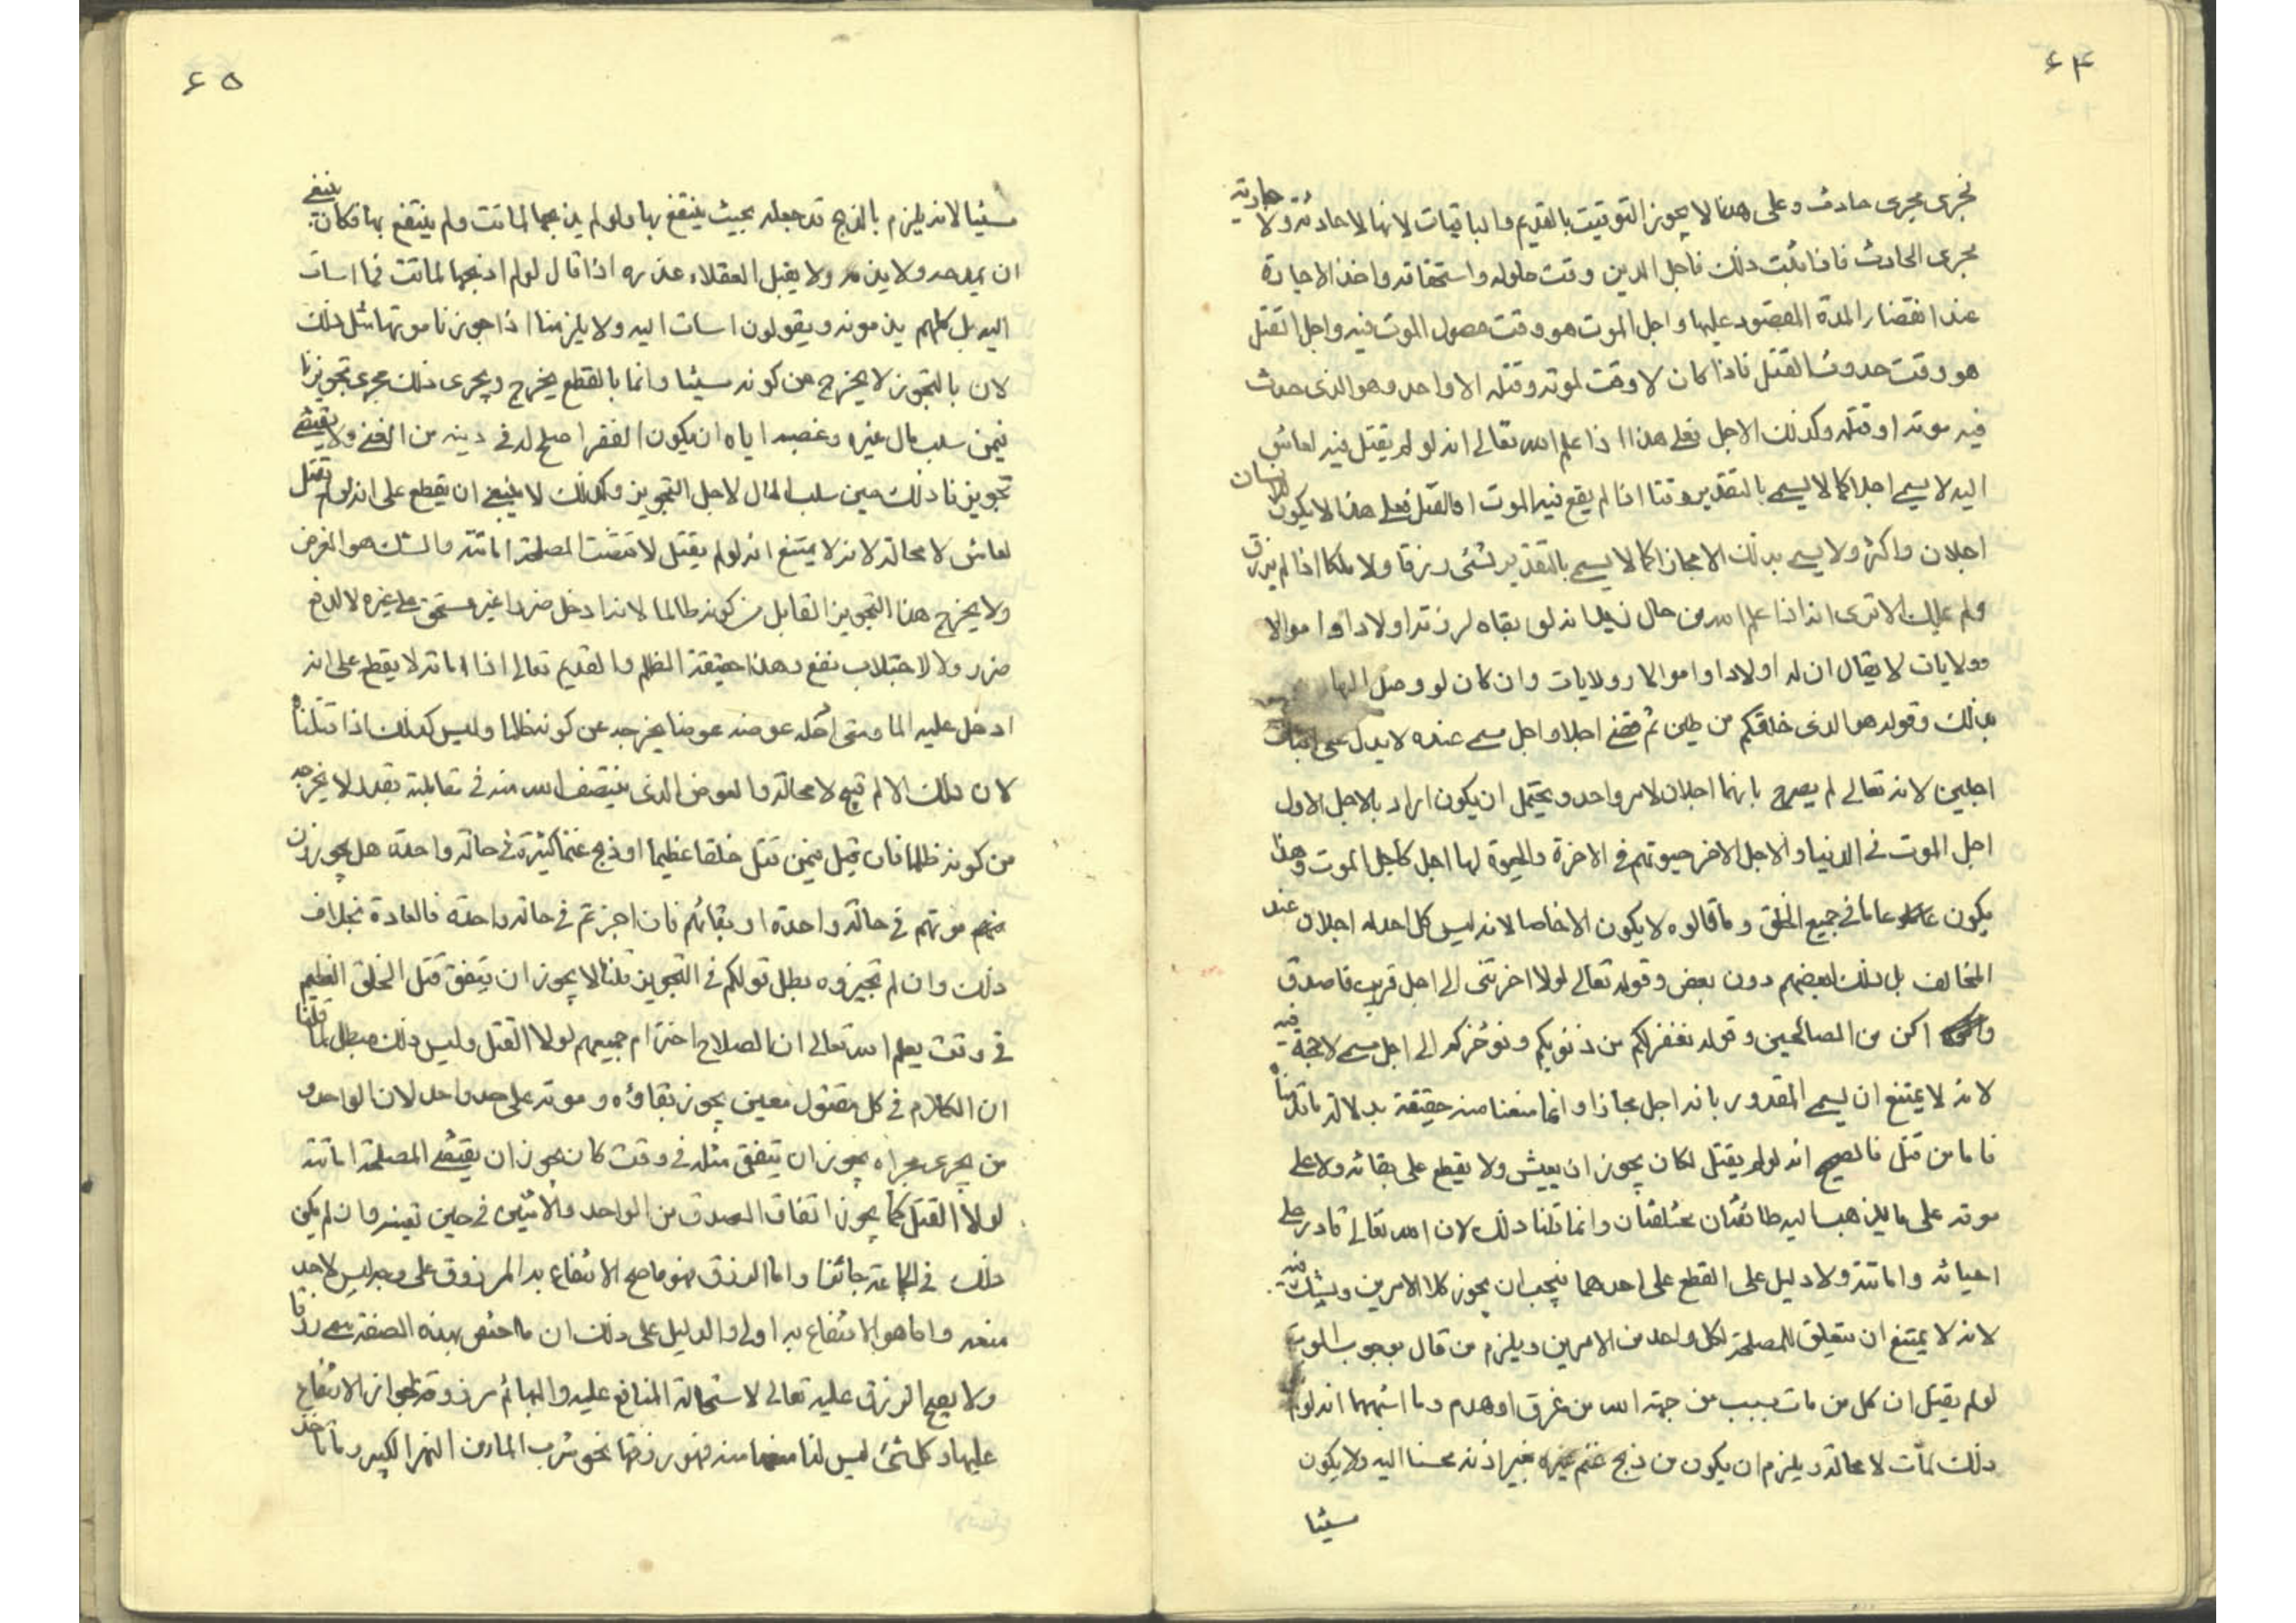 ۶۴
فجرى مجرى حادث وعلى هذا لا يجوز التوقيت بالقديم والباقيات لانها لا حادثة ولا جارية
مجرى الحادث فاذا ثبت ذلك فاجل الدين وقت حلوله واستحقاقه واخذ الاجارة
عند انقضاء المدة المعقود عليها واجل الموت هو وقت حصول الموت فيه واجل القتل
هو وقت حدوث القتل فاذا كان لا وقت لموته وقتله الا واحد وهو الذى حدث
فيه موته او قتله وكذلك الاجل فعلى هذا اذا علم الله تعالى انه لو لم يقتل فيه لعاش
اليه لا يسمى اجلا كما لا يسمى بالتقدير وقتا اذا لم يقع فيه الموت او القتل فعلى هذا لا يكون للانسان
اجلان واكثر ولا يسمى بذلك الا مجازا كما لا يسمى بالتقدير لشئ رزقا ولا ملكا اذا لم يرزق
ولم يملك الا ترى انه اذا علم الله من حال زيد انه لو بقاه لرزقه اولادا واموالا
وولايات لا يقال ان له اولادا واموالا وولايات وان كان لو وصل اليها
بذلك وقوله هو الذى خلقكم من طين ثم قضى اجلا واجل مسمى عنده لا يدل على اثبات
اجلين لانه تعالى لم يصرح بانهما اجلان لامر واحد ويحتمل ان يكون اراد بالاجل الاول
اجل الموت فى الدنيا والاجل الاخر حيوتهم فى الاخرة والحيوة لها اجل كاجل الموت وهذا
يكون عاما فى جميع الخلق وما قالوه لا يكون الا خاصا لانه ليس كل احد له اجلان عند
المخالف بل ذلك لبعضهم دون بعض وقوله تعالى لولا اخرتنى الى اجل قريب فاصدق
و اكن من الصالحين وقوله يغفر لكم من ذنوبكم ونؤخركم الى اجل مسمى لا حجة فيه
لانه لا يمتنع ان يسمى المقدور بانه اجل مجازا وانما منعنا منه حقيقة بدلالة ما قلناه
فاما من قتل فالصحيح انه لو لم يقتل لكان يجوز ان يعيش ولا يقطع على بقائه ولا على
موته على ما يذهب اليه طائفتان مختلفتان وانما قلنا ذلك لان الله تعالى قادر على
احيائه واماتته ولا دليل على القطع على احدهما فيجب ان يجوز كلا الامرين ويشك فيه
لانه لا يمتنع ان يتعلق المصلحة لكل واحد من الامرين ويلزم من قال بوجوب الموت
لو لم يقتل ان كل من مات بسبب من جهة الله من غرق او هدم وما اشبههما انه لولا
ذلك لمات لا محالة ويلزم ان يكون من ذبح غنم غيره بغير اذنه محسنا اليه ولا يكون
سيئا
۶۵
مسيئا لانه يلزم بالذبح قد جعله بحيث ينتفع بها ولو لم يذبحها لماتت ولم ينتفع بها وكان ينبغى
ان يمدحه ولا يذمه ولا يقبل العقلاء عذره اذا قال لو لم اذبحها لماتت فما اسات
اليه بل كلهم يذمونه ويقولون اسات اليه ولا يلزمنا اذا جوزنا موتها مثل ذلك
لان بالتجويز لا يخرج من كونه مسيئا وانما بالقطع يخرج ويجرى ذلك مجرى تجويزنا
فيمن سلب مال غيره وغصبه اياه ان يكون الفقر اصلح له فى دينه من الغنى ولا يقتضى
تجويزنا ذلك حين سلب المال لاجل التجويز وكذلك لا ينبغى ان يقطع على انه لو لم يقتل
لعاش لا محالة لانه لا يمتنع انه لو لم يقتل لاقتضت المصلحة اماتته والشك هو الغرض
ولا يخرج هذا التجويز القاتل من كونه ظالما لانه ادخل ضررا غير مستحق على غيره لا لدفع
ضرر ولا لاجتلاب نفع وهذا حقيقة الظلم والقديم تعالى اذا اماته لا يقطع على انه
ادخل عليه الما ومتى ادخله عوضه عوضا يخرجه عن كونه ظلما وليس كذلك اذا قتلناه
لان ذلك الالم قبيح لا محالة والعوض الذى ينتصف الله منه فى مقابلته بقدره لا يخرجه
من كونه ظلما فان قيل فيمن قتل خلقا عظيما او ذبح غنما كثيرة فى حالة واحدة هل يجوزون
موتهم فى حالة واحدة او بقائهم فان اجزتم فى حالة واحدة فالعادة بخلاف
ذلك وان لم تجيزوه بطل قولكم فى التجويز قلنا لا يجوز ان يتفق قتل الخلق العظيم
فى وقت يعلم الله تعالى ان الصلاح اخترام جميعهم لولا القتل وليس ذلك مبطل لما قلنا
ان الكلام فى كل مقتول معين يجوز بقاؤه وموته على حد واحد لان الواحد و
من يجرى مجراه يجوز ان يتفق مثله فى وقت كان يجوز ان يقتضى المصلحة اماتته
لولا القتل كما يجوز اتفاق الصدق من الواحد والاثنين فى حين تعينه وان لم يكن
ذلك فى الجماعة جائزا واما الرزق فهو ما صح الانتفاع به المرزوق على وجه ليس لاحد
منعه واما هو بالانتفاع به اولى والدليل على ذلك ان ما اختص بهذه الصفة سمى رزقا
ولا يصح الرزق عليه تعالى لاستحالة المنافع عليه والبهائم مرزوقة لجواز الانتفاع
عليها وكل شئ ليس لنا منعها منه فهو رزقها نحو شرب الماء من النهر الكبير وما تاخذ